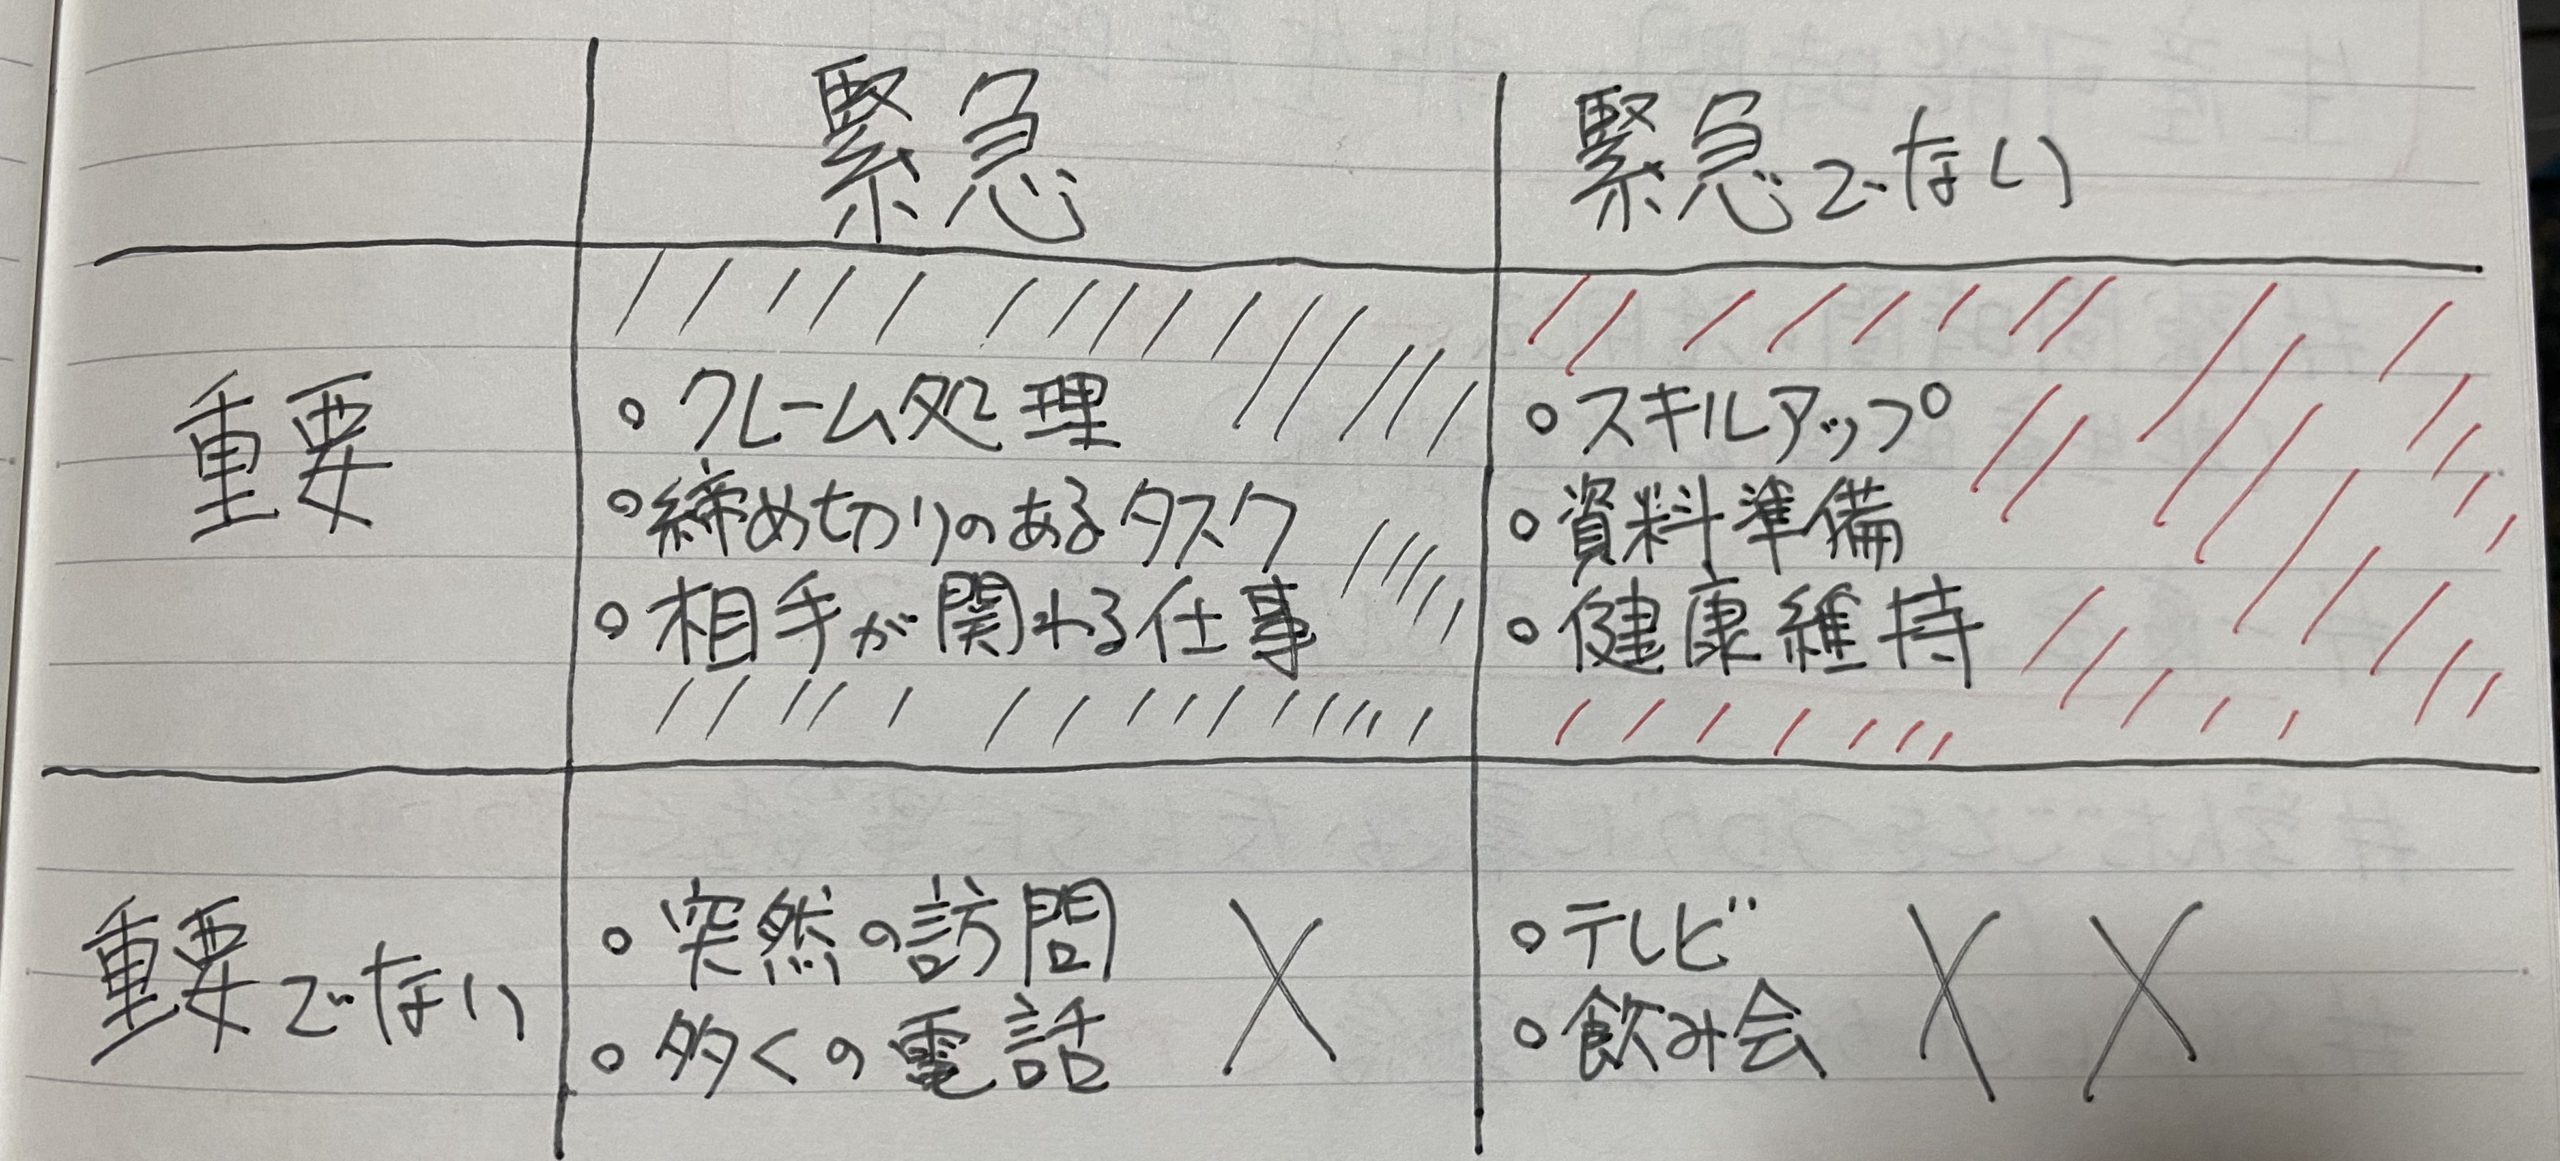 緊急
緊急でない
重要
○ クレーム処理
○ 締め切りのあるタスク
○ 相手が関わる仕事
○ スキルアップ
○ 資料準備
○ 健康維持
重要でない
○ 突然の訪問
○ 多くの電話
X
○ テレビ
○ 飲み会
X X